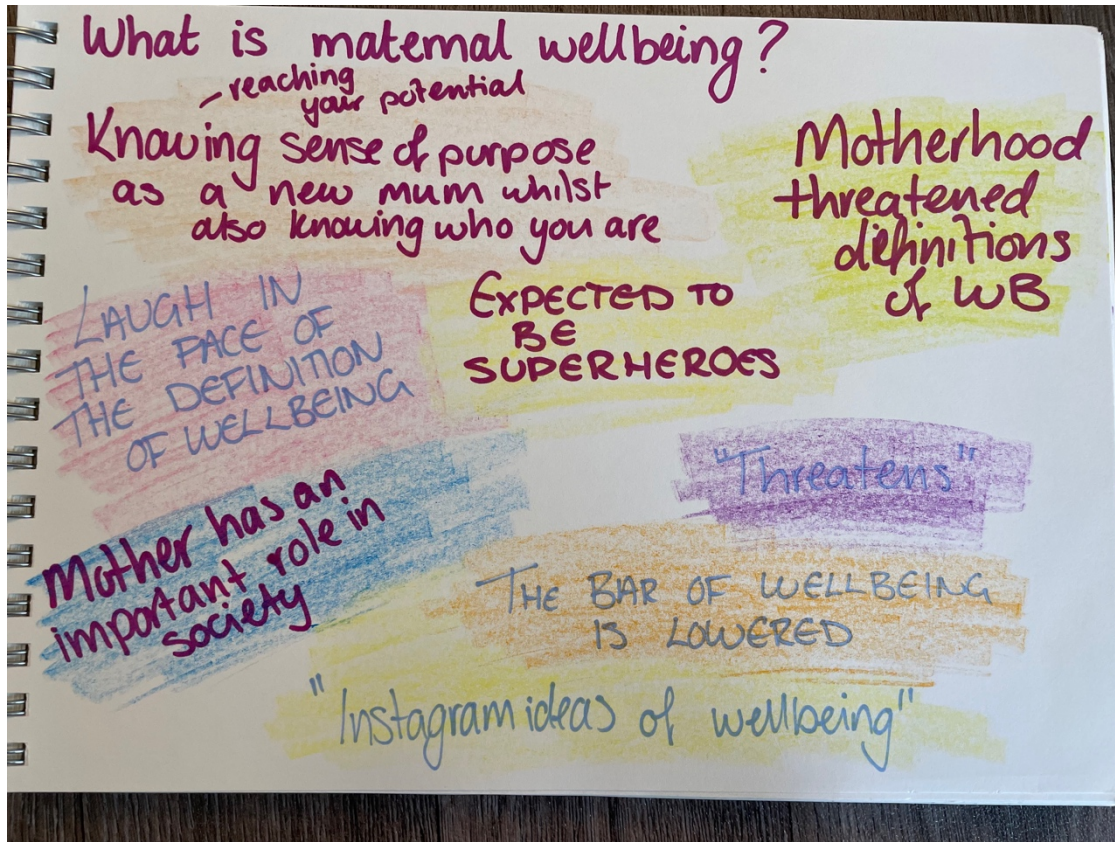 What is maternal wellbeing?
- reaching
your potential
Knowing sense of purpose
as a new mum whilst
also knowing who you are
Motherhood
threatened
definitions
of WB
LAUGH IN
THE PACE OF
THE DEFINITION
OF WELLBEING
EXPECTED TO
BE
SUPERHEROES
"Threatens"
Mother has an
important role in
society
THE BAR OF WELLBEING
IS LOWERED
"Instagram ideas of wellbeing"